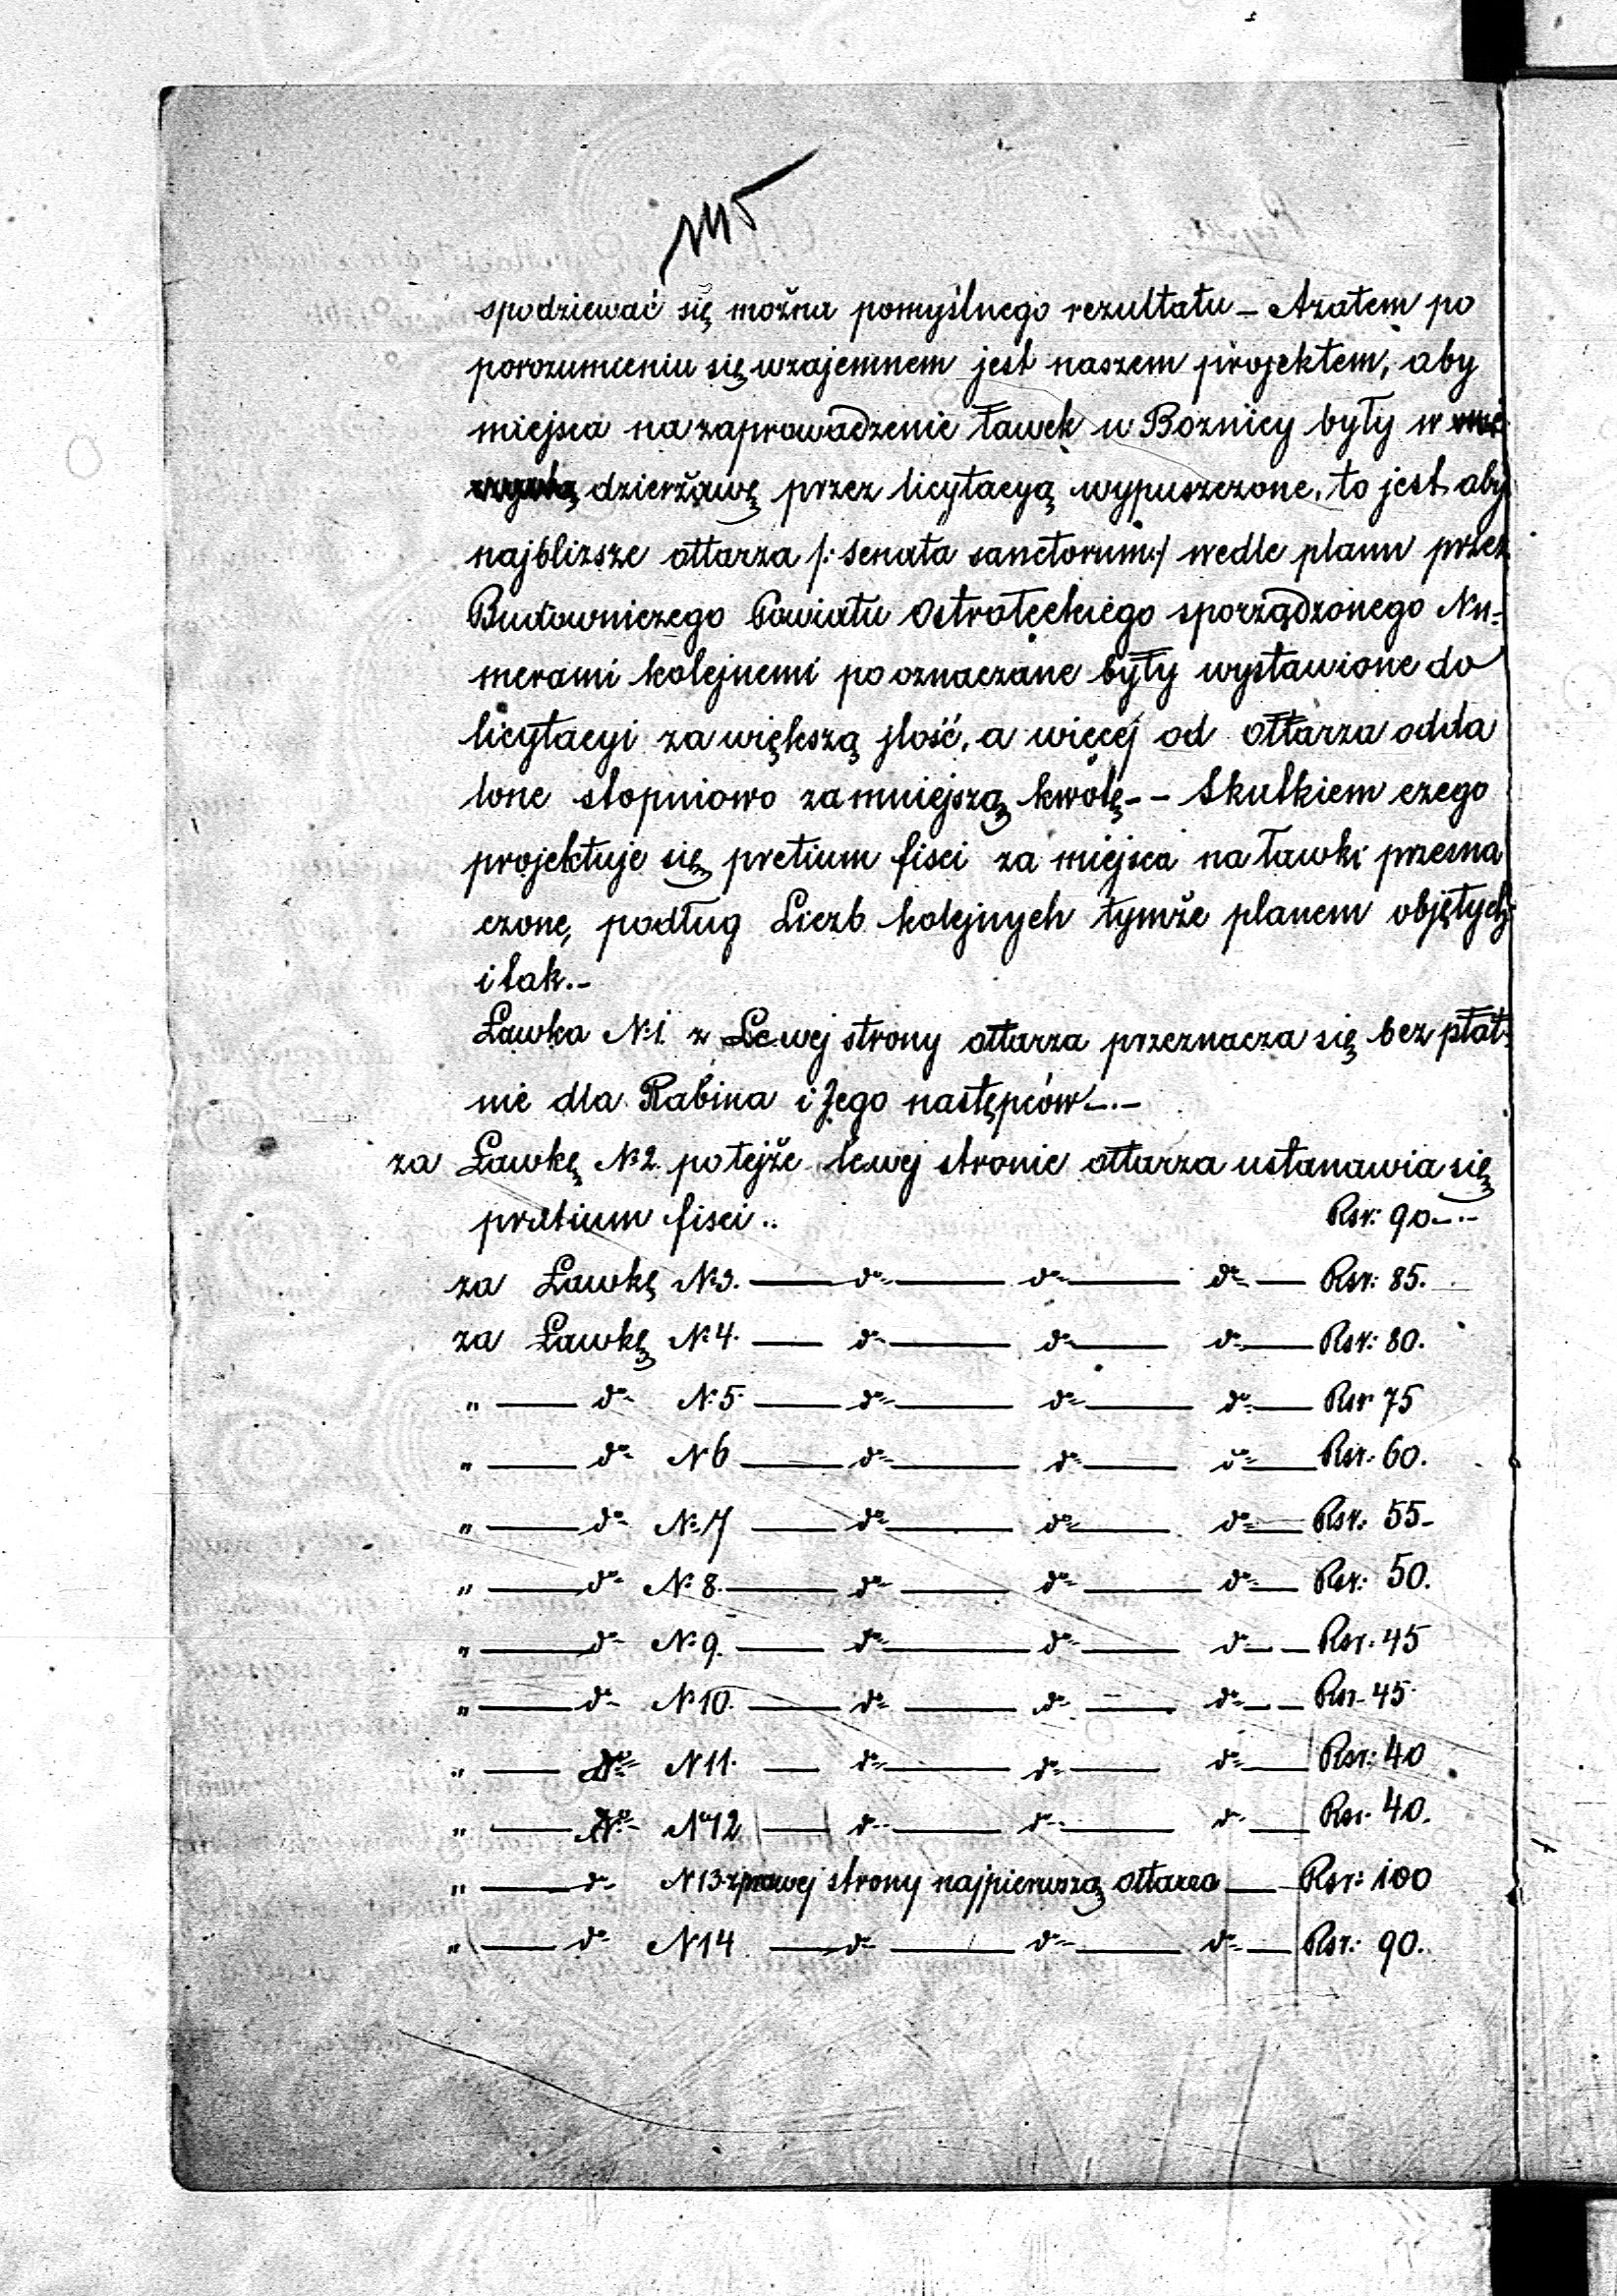 spodziewać się można pomyślnego rezultatu – Azatem po
porozumieniu się wzajemnem jest naszem projektem, aby
miejsca na zaprowadzenie ławek w Boznicy były w
dzierżawę przez licytacyą wypuszczone, to jest aby
najbliższe ołtarza /: Senata sanctorum :/ wedle planu przez
Budowniczego Powiatu Ostrołęckiego sporządzonego Nu-
merami kolejnemi pooznaczane były wystawione do
licytacyi za większą jlość, a więcej od ołtarza odda
lone stopniowo za mniejszą kwotę -- Skutkiem czego
projektuje się pretium fisci za miejsca na ławki przezna
czone, podług Liczb kolejnych tymże planem objętych
i tak.-
Ławka N:1. z Lewej strony ołtarza przeznacza się bez płat-
nie dla Rabina i Jego następców –.–
za Ławkę N:2. po tejże lewej stronie ołtarza ustanawia się
pretium fisci .. Rsr: 90-.-
za Ławkę N:3. — do — do — do — Rsr: 85.
za Ławkę N:4. — do — do — do — Rsr: 80.
„ — do N:5 — do — do — do — Rsr 75
„ — do N 6 — do — do — do — Rsr: 60.
„ — do N:7 — do — do — do — Rsr: 55-
„ — do N: 8. — do — do — do — Rsr: 50.
„ — do N:9. — do — do — do — Rsr: 45
„ — do N:10. — do — do — do — Rsr- 45
„ — do N 11. — do — do — do — Rsr: 40
„ — do N 12 — do — do — do — Rsr. 40.
„ — do N 13 z prawej strony najpierwszą ołtarza — Rsr: 100
„ — do N 14 — do — do — do — Rsr: 90.